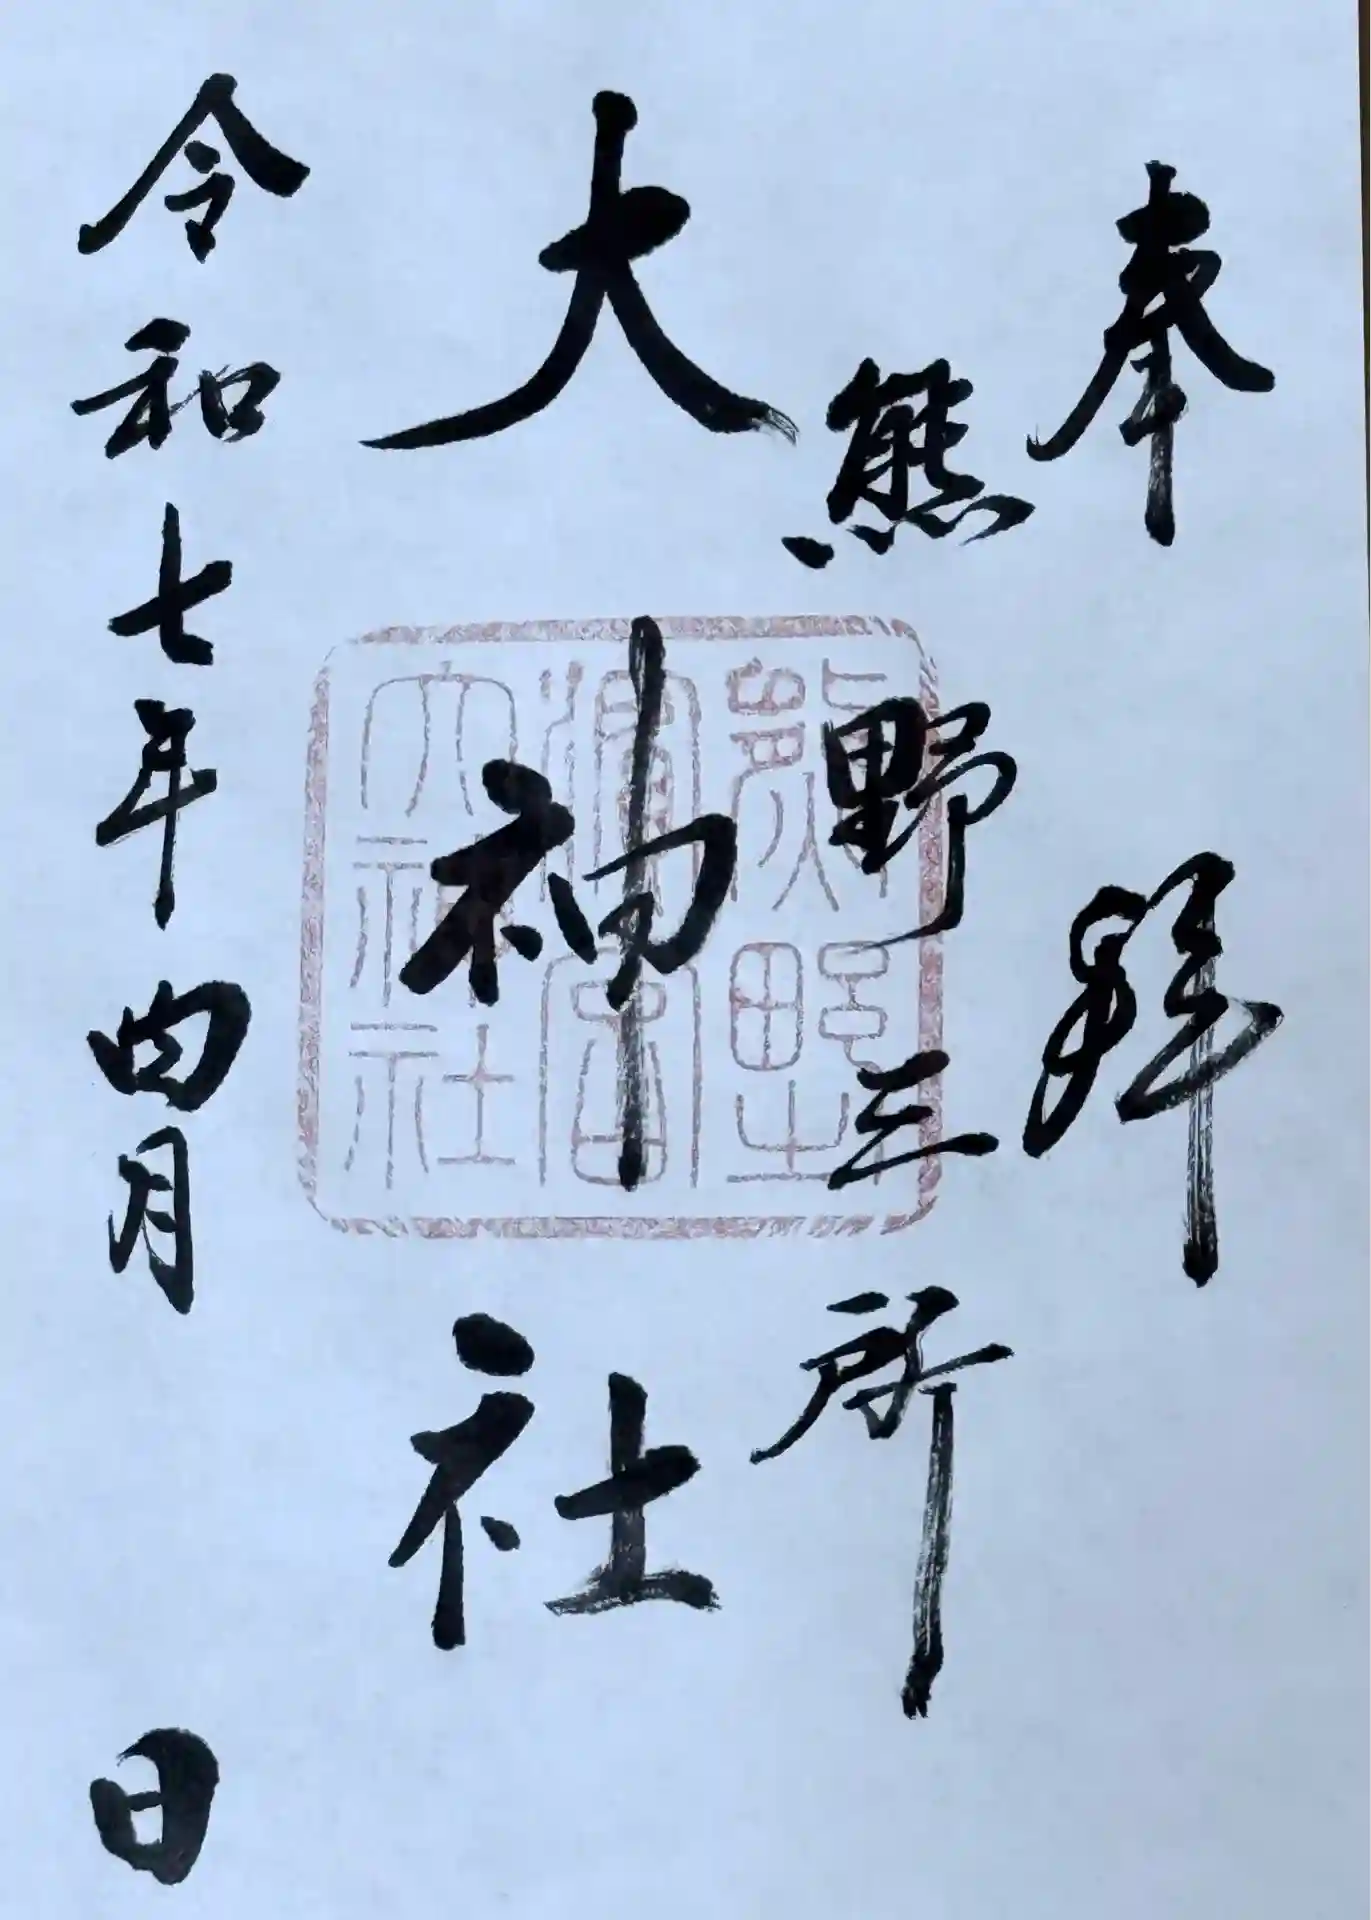 奉拝
熊野三所
大神社
熊野
濱宮
大神社
令和七年四月 日